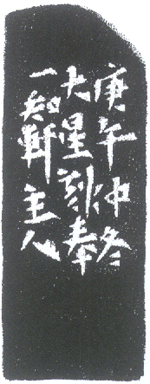 庚午仲冬
大星刻奉
一知鄮主人